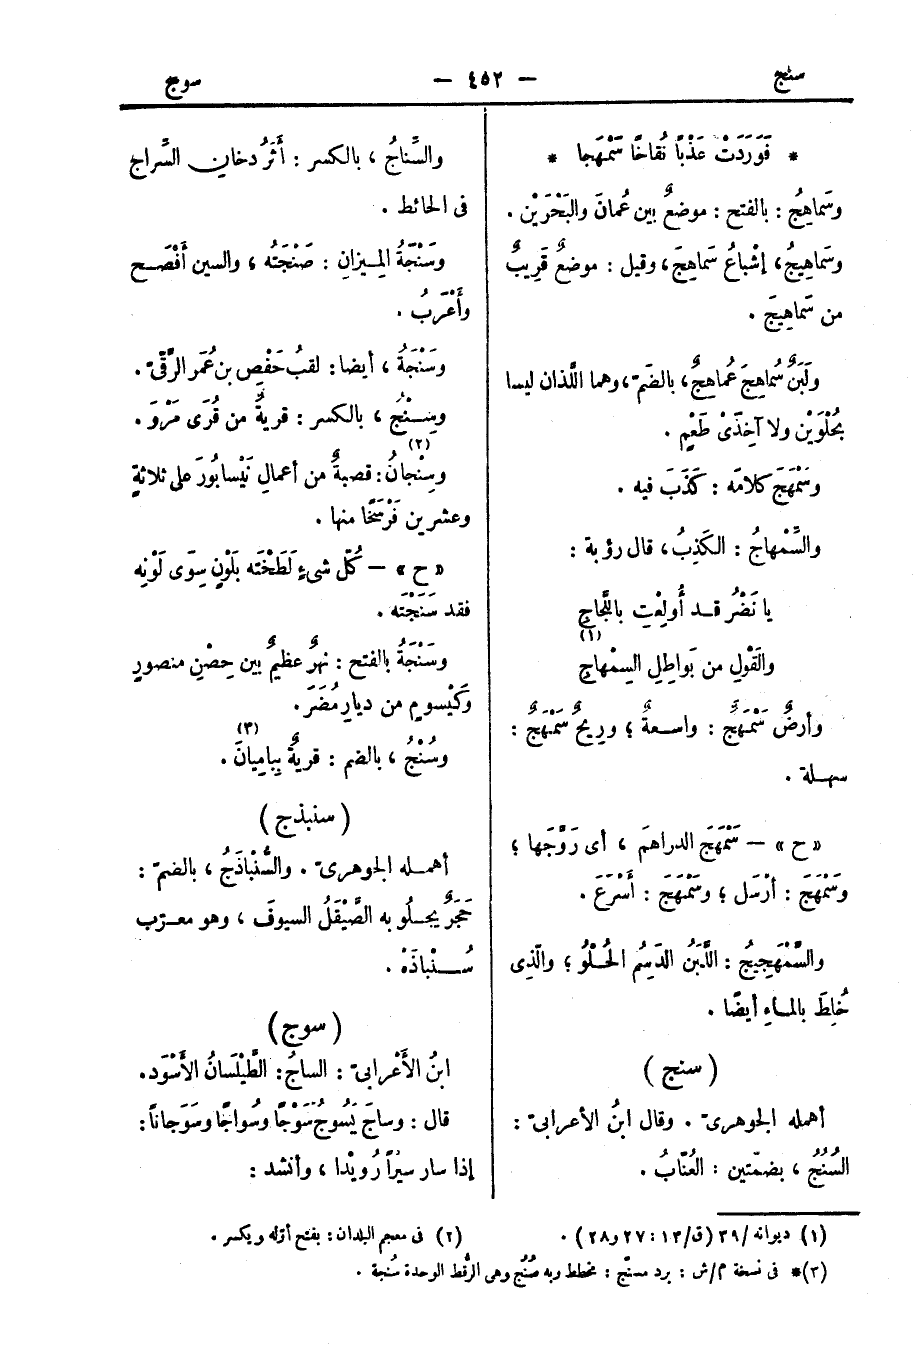 سنج — ٤٥٢ — سوج
* فَوَرَدَتْ عَذْبًا نُقاخًا سَمْهَجا *
وسَماهِجُ : بالفتح : موضعٌ بين عُمانَ والبَحْرَيْن .
وسَماهِيجُ ، إشْباعُ سَماهِجَ ، وقيل : موضعٌ قَرِيبٌ
من سَماهِيجَ .
ولَبَنٌ سُماهِجٌ عُماهِجٌ ، بالضَمّ ، وهما اللَّذان ليسا
بحُلْوَيْن ولا آخِذَىْ طَعْمٍ .
وسَمْهَجَ كلامَه : كَذَبَ فيه .
والسَّمْهاجُ : الكَذِبُ ، قال رؤبة :
يا نَضْرُ قد أُولِعْتِ باللَّجاجِ
والقَوْلِ من بَواطِلِ السِمْهاجِ (١)
وأرضٌ سَمْهَجٌ : واسعةٌ ؛ ورِيحٌ سَمْهَجٌ :
سهلة .
« ح » — سَمْهَجَ الدراهمَ ، أى رَوَّجَها ؛
وسَمْهَجَ : أرْسَل ؛ وسَمْهَجَ : أسْرَعَ .
والسَّمْهَجِيجُ : اللَّبَنُ الدَسِمُ الحُلْوُ ؛ والّذى
خُلِطَ بالماءِ أيضًا .
( سنج )
أهمله الجوهرىّ . وقال ابنُ الأعرابىّ :
السُنُجُ ، بضمّتين : العُنّابُ .
والسِّناجُ ، بالكسر : أثَرُ دخانِ السَّراجِ
فى الحائط .
وسَنْجَةُ المِيزانِ : صَنْجَتُه ، والسين أفْصَح
وأعْرَبُ .
وسَنْجَةُ ، أيضا : لقبُ حَفْصِ بن عُمَر الرَّقِّىّ .
وسِنْجُ ، بالكسر : قريةٌ من قُرَى مَرْوَ .
وسِنْجانُ (٢) : قصبةٌ من أعمالِ نَيْسابُورَ على ثلاثةٍ
وعشرين فَرْسَخًا منها .
« ح » — كُلّ شىءٍ لَطَخْتَه بلَوْنٍ سِوَى لَوْنِه
فقد سَنَجْتَه .
وسَنْجَةُ بالفتح : نهرٌ عظيمٌ بين حِصْنِ منصورٍ
وكَيْسومٍ من ديارِ مُضَرَ .
وسُنْجُ ، بالضم : قريةٌ بِبامِيانَ (٣) .
( سنبذج )
أهمله الجوهرىّ . والسُّنْباذَجُ ، بالضمّ :
حَجَرٌ يجلُو به الصَّيْقَلُ السيوفَ ، وهو معرّب
سُنْباذَهْ .
( سوج )
ابنُ الأعْرابىّ : الساجُ : الطَّيْلَسانُ الأَسْوَد .
قال : وساجَ يَسُوجُ سَوْجًا وسُواجًا وسَوَجانًا :
إذا سار سَيْرًا رُوَيْدا ، وأنشد :
(١) ديوانه /٣٩ (ق/١٣ : ٢٧ و٢٨) .
(٢) فى معجم البلدان : بفتح أوّله ويكسر .
(٣) * فى نسخة م/ش : برد مسنّج : مخطط وبه سُنُج وهى الرُّقط الوحدة سُنجة .